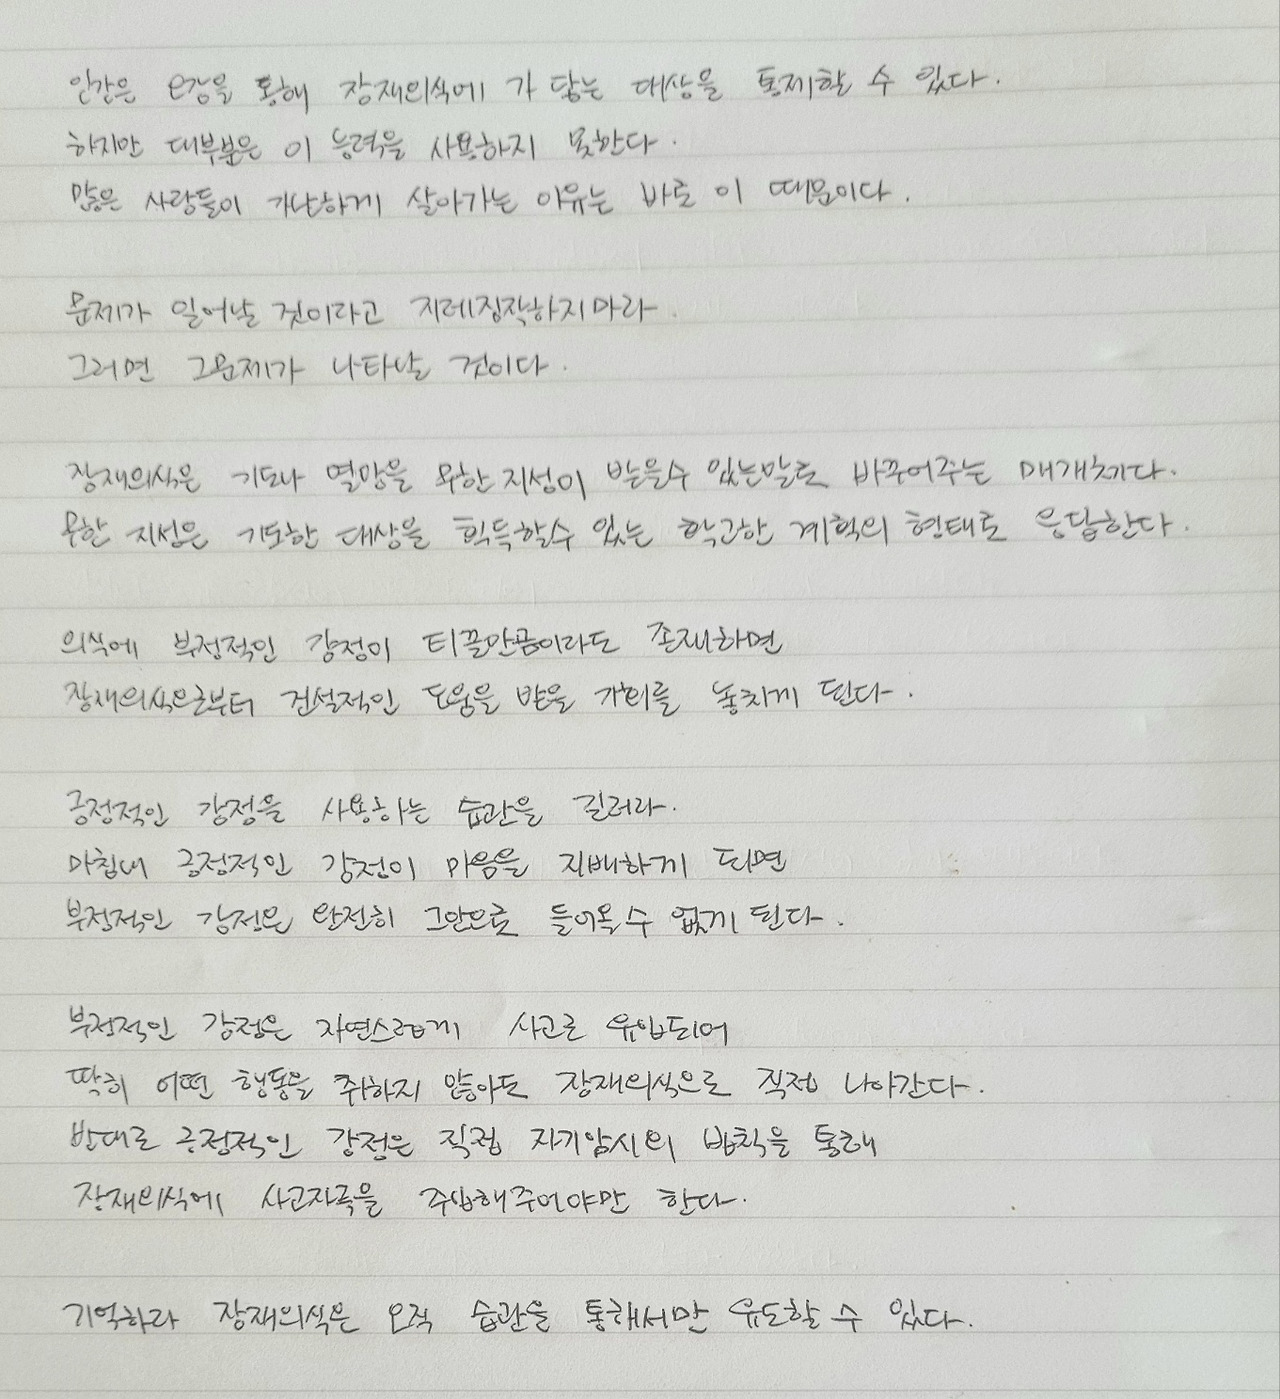 인간은 오감을 통해 잠재의식에 가 닿는 대상을 통제할 수 있다.
하지만 대부분은 이 능력을 사용하지 못한다.
많은 사람들이 가난하게 살아가는 이유는 바로 이 때문이다.
문제가 일어날 것이라고 지레짐작하지마라.
그러면 그문제가 나타날 것이다.
잠재의식은 기도나 열망을 무한 지성이 받을수 있는말로 바꾸어주는 매개체다.
무한 지성은 기도한 대상을 획득할수 있는 확고한 계획의 형태로 응답한다.
의식에 부정적인 감정이 티끌만큼이라도 존재하면
잠재의식으로부터 건설적인 도움을 받을 기회를 놓치게 된다.
긍정적인 감정을 사용하는 습관을 길러라.
마침내 긍정적인 감정이 마음을 지배하게 되면
부정적인 감정은 완전히 그안으로 들어올 수 없게 된다.
부정적인 감정은 자연스럽게 사고로 유입되어
딱히 어떤 행동을 취하지 않아도 잠재의식으로 직접 나아간다.
반대로 긍정적인 감정은 직접 자기암시의 법칙을 통해
잠재의식에 사고자극을 주입해주어야만 한다.
기억하라 잠재의식은 오직 습관을 통해서만 유도할 수 있다.